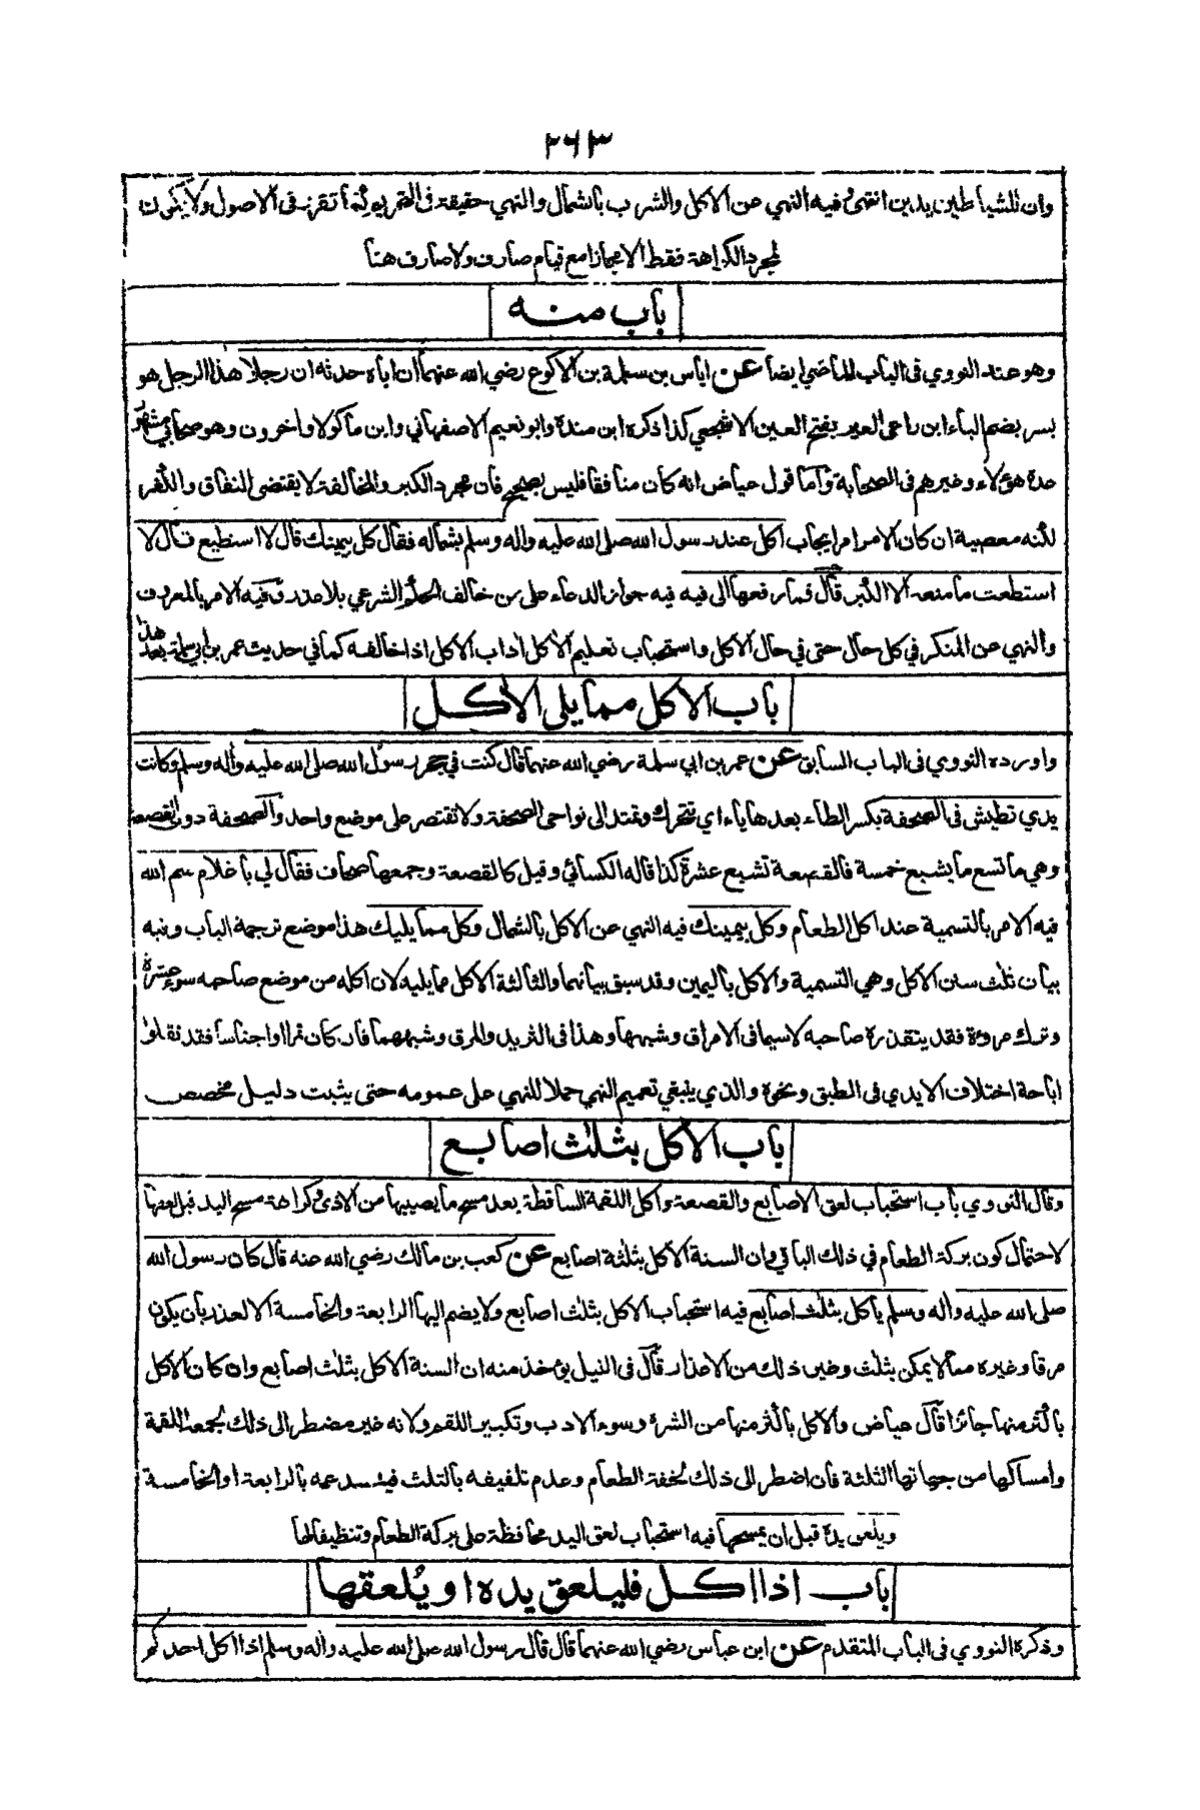 ٢٦٣
وان للشياطين يدين انتهى وفيه النهي عن الاكل والشرب بالشمال والنهي حقيقة فى التحريم كما تقرر فى الاصول ولا يكون
لمجرد الكراهة فقط الا مجازا مع قيام صارف ولا صارف هنا
باب منه
وهو عند النووي فى الباب الماضي ايضا عن اياس بن سلمة بن الاكوع رضي الله عنهما ان اباه حدثه ان رجلا هذا الرجل هو
بسر بضم الباء ابن راعي العير بفتح العين الاشجعي كذا ذكره ابن مندة وابو نعيم الاصفهاني وابن ماكولا واخرون وهو صحابي مشهور
عدة هؤلاء وغيرهم فى الصحابة واما قول عياض انه كان منافقا فليس بصحيح فان مجرد الكبر والمخالفة لا يقتضى النفاق والكفر
لكنه معصية ان كان الامر امر ايجاب اكل عند رسول الله صلى الله عليه واله وسلم بشماله فقال كل بيمينك قال لا استطيع قال لا
استطعت ما منعه الا الكبر قال فما رفعها الى فيه فيه جواز الدعاء على من خالف الحكم الشرعي بلا عذر وفيه الامر بالمعروف
والنهي عن المنكر في كل حال حتى في حال الاكل واستحباب تعليم الاكل اداب الاكل اذا خالفه كما في حديث عمر بن ابي سلمة بعد هذا
باب الاكل مما يلى الاكل
واورده النووي فى الباب السابق عن عمر بن ابي سلمة رضي الله عنهما قال كنت في حجر رسول الله صلى الله عليه واله وسلم وكانت
يدي تطيش فى الصحفة بكسر الطاء بعدها ياء اي تتحرك وتمتد الى نواحى الصحفة ولا تقتصر على موضع واحد والصحفة دون القصعة
وهي ما تسع ما يشبع خمسة فالقصعة تشبع عشرة كذا قاله الكسائي وقيل كالقصعة وجمعها صحاف فقال لي يا غلام سم الله
فيه الامر بالتسمية عند اكل الطعام وكل بيمينك فيه النهي عن الاكل بالشمال وكل مما يليك هذا موضع ترجمة الباب وفيه
بيان ثلث سنن الاكل وهي التسمية والاكل باليمين وقد سبق بيانهما والثالثة الاكل مما يليه لان اكله من موضع صاحبه سوء عشرة
وترك مروة فقد يتقذره صاحبه لا سيما فى الامراق وشبهها وهذا فى الثريد والمرق وشبههما فان كان تمرا او اجناسا فقد نقلوا
اباحة اختلاف الايدي فى الطبق ونحوه والذي ينبغي تعميم النهي حملا للنهي على عمومه حتى يثبت دليل مخصص
باب الاكل بثلث اصابع
وقال النووي باب استحباب لعق الاصابع والقصعة واكل اللقمة الساقطة بعد مسح ما يصيبها من الاذى وكراهة مسح اليد قبل لعقها
لاحتمال كون بركة الطعام في ذلك الباقي وان السنة الاكل بثلثة اصابع عن كعب بن مالك رضي الله عنه قال كان رسول الله
صلى الله عليه واله وسلم ياكل بثلث اصابع فيه استحباب الاكل بثلث اصابع ولا يضم اليها الرابعة والخامسة الا لعذر بان يكون
مرقا وغيره مما لا يمكن بثلث وغير ذلك من الاعذار قال فى النيل يؤخذ منه ان السنة الاكل بثلث اصابع وان كان الاكل
باكثر منها جائزا قال عياض والاكل باكثر منها من الشره وسوء الادب وتكبير اللقم ولانه غير مضطر الى ذلك لجمعه اللقمة
وامساكها من جهاتها الثلثة فان اضطر الى ذلك لخفة الطعام وعدم تلفيفه بالثلث فيدعمه بالرابعة او الخامسة
ويلعق يده قبل ان يمسحها فيه استحباب لعق اليد محافظة على بركة الطعام وتنظيفا لها
باب اذا اكل فليلعق يده او يُلعقها
وذكره النووي فى الباب المتقدم عن ابن عباس رضي الله عنهما قال قال رسول الله صلى الله عليه واله وسلم اذا اكل احدكم